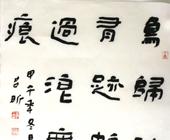 鳥歸
有跡
過浪無
痕
甲午年冬月
呂昕